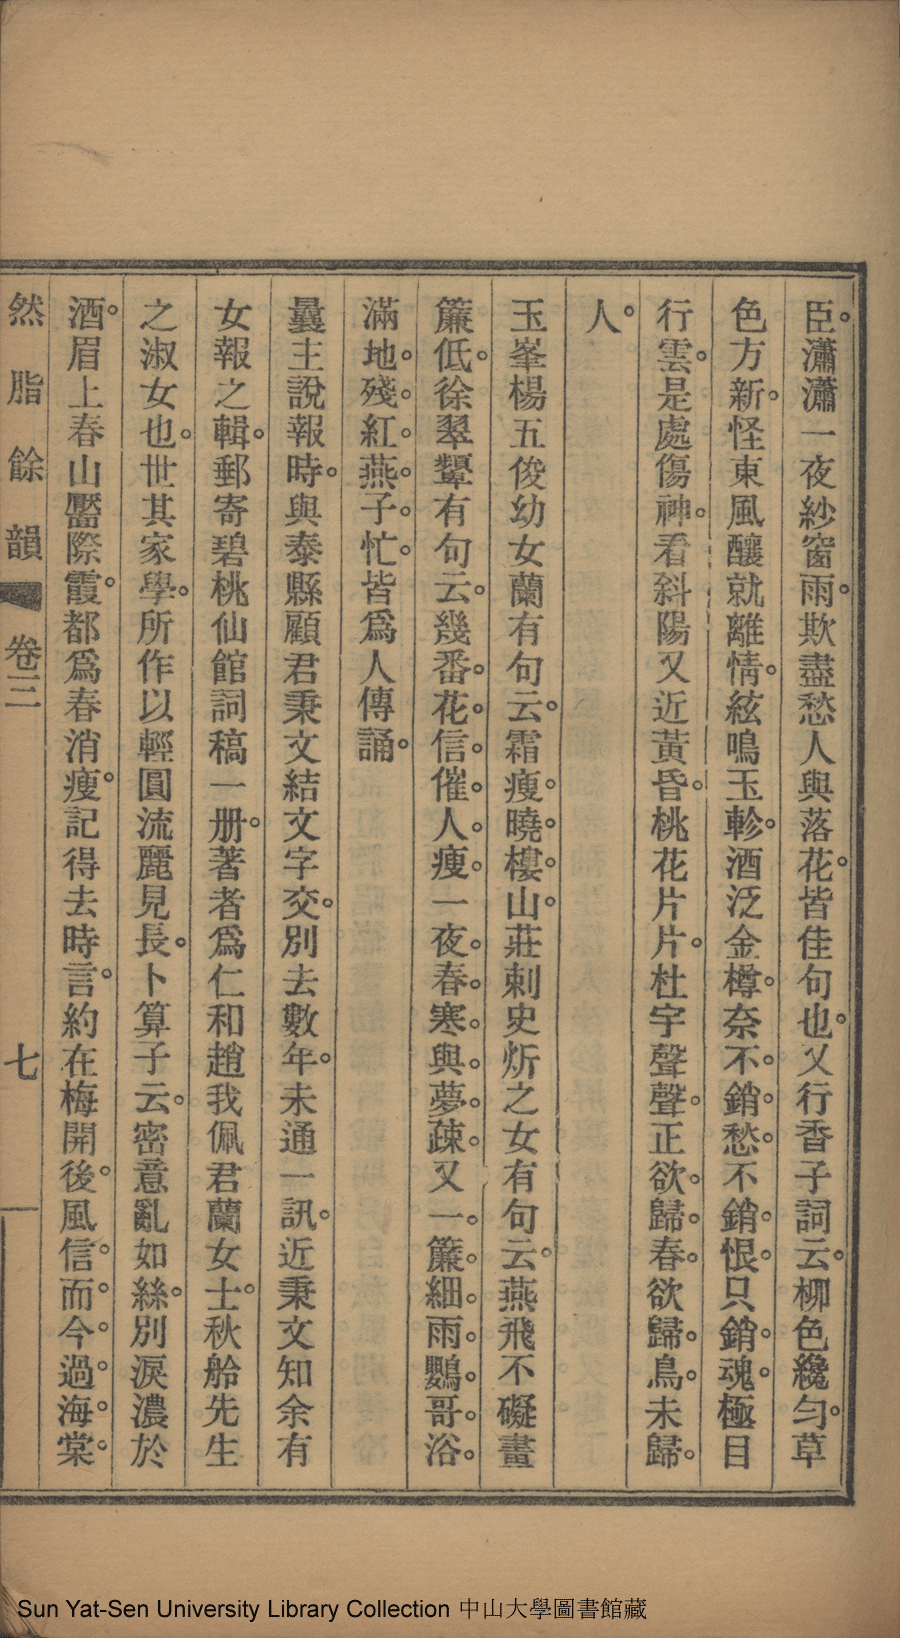 臣。瀟瀟一夜紗窗雨。欺盡愁人與落花。皆佳句也。又行香子詞云。柳色纔勻。草
色方新。怪東風釀就離情。絃鳴玉軫。酒泛金樽。奈不。銷。愁。不銷。恨。只銷。魂。極目
行雲。是處傷神。看斜陽又近黃昏。桃花片片。杜宇聲聲。正欲。歸。春。欲歸。鳥。未歸。
人。
玉峯楊五俊幼女蘭有句云。霜瘦。曉。樓。山。莊刺史炘之女有句云。燕飛不礙畫
簾低。徐翠顰有句云。幾番。花。信。催。人。瘦。一夜。春。寒。與。夢。疎。又一。簾。細。雨。鸚。哥。浴。
滿地。殘。紅。燕。子。忙。皆爲人傳誦。
曩主說報時。與泰縣顧君秉文結文字交。別去數年。未通一訊。近秉文知余有
女報之輯。郵寄碧桃仙館詞稿一册。著者爲仁和趙我佩君蘭女士。秋舲先生
之淑女也。世其家學。所作以輕圓流麗見長。卜算子云。密意亂如絲。別淚濃於
酒。眉上春山黶際霞。都爲春消瘦。記得去時言。約在梅開後。風信。而。今。過。海。棠。
然脂餘韻 卷三 七
Sun Yat-Sen University Library Collection 中山大學圖書館藏